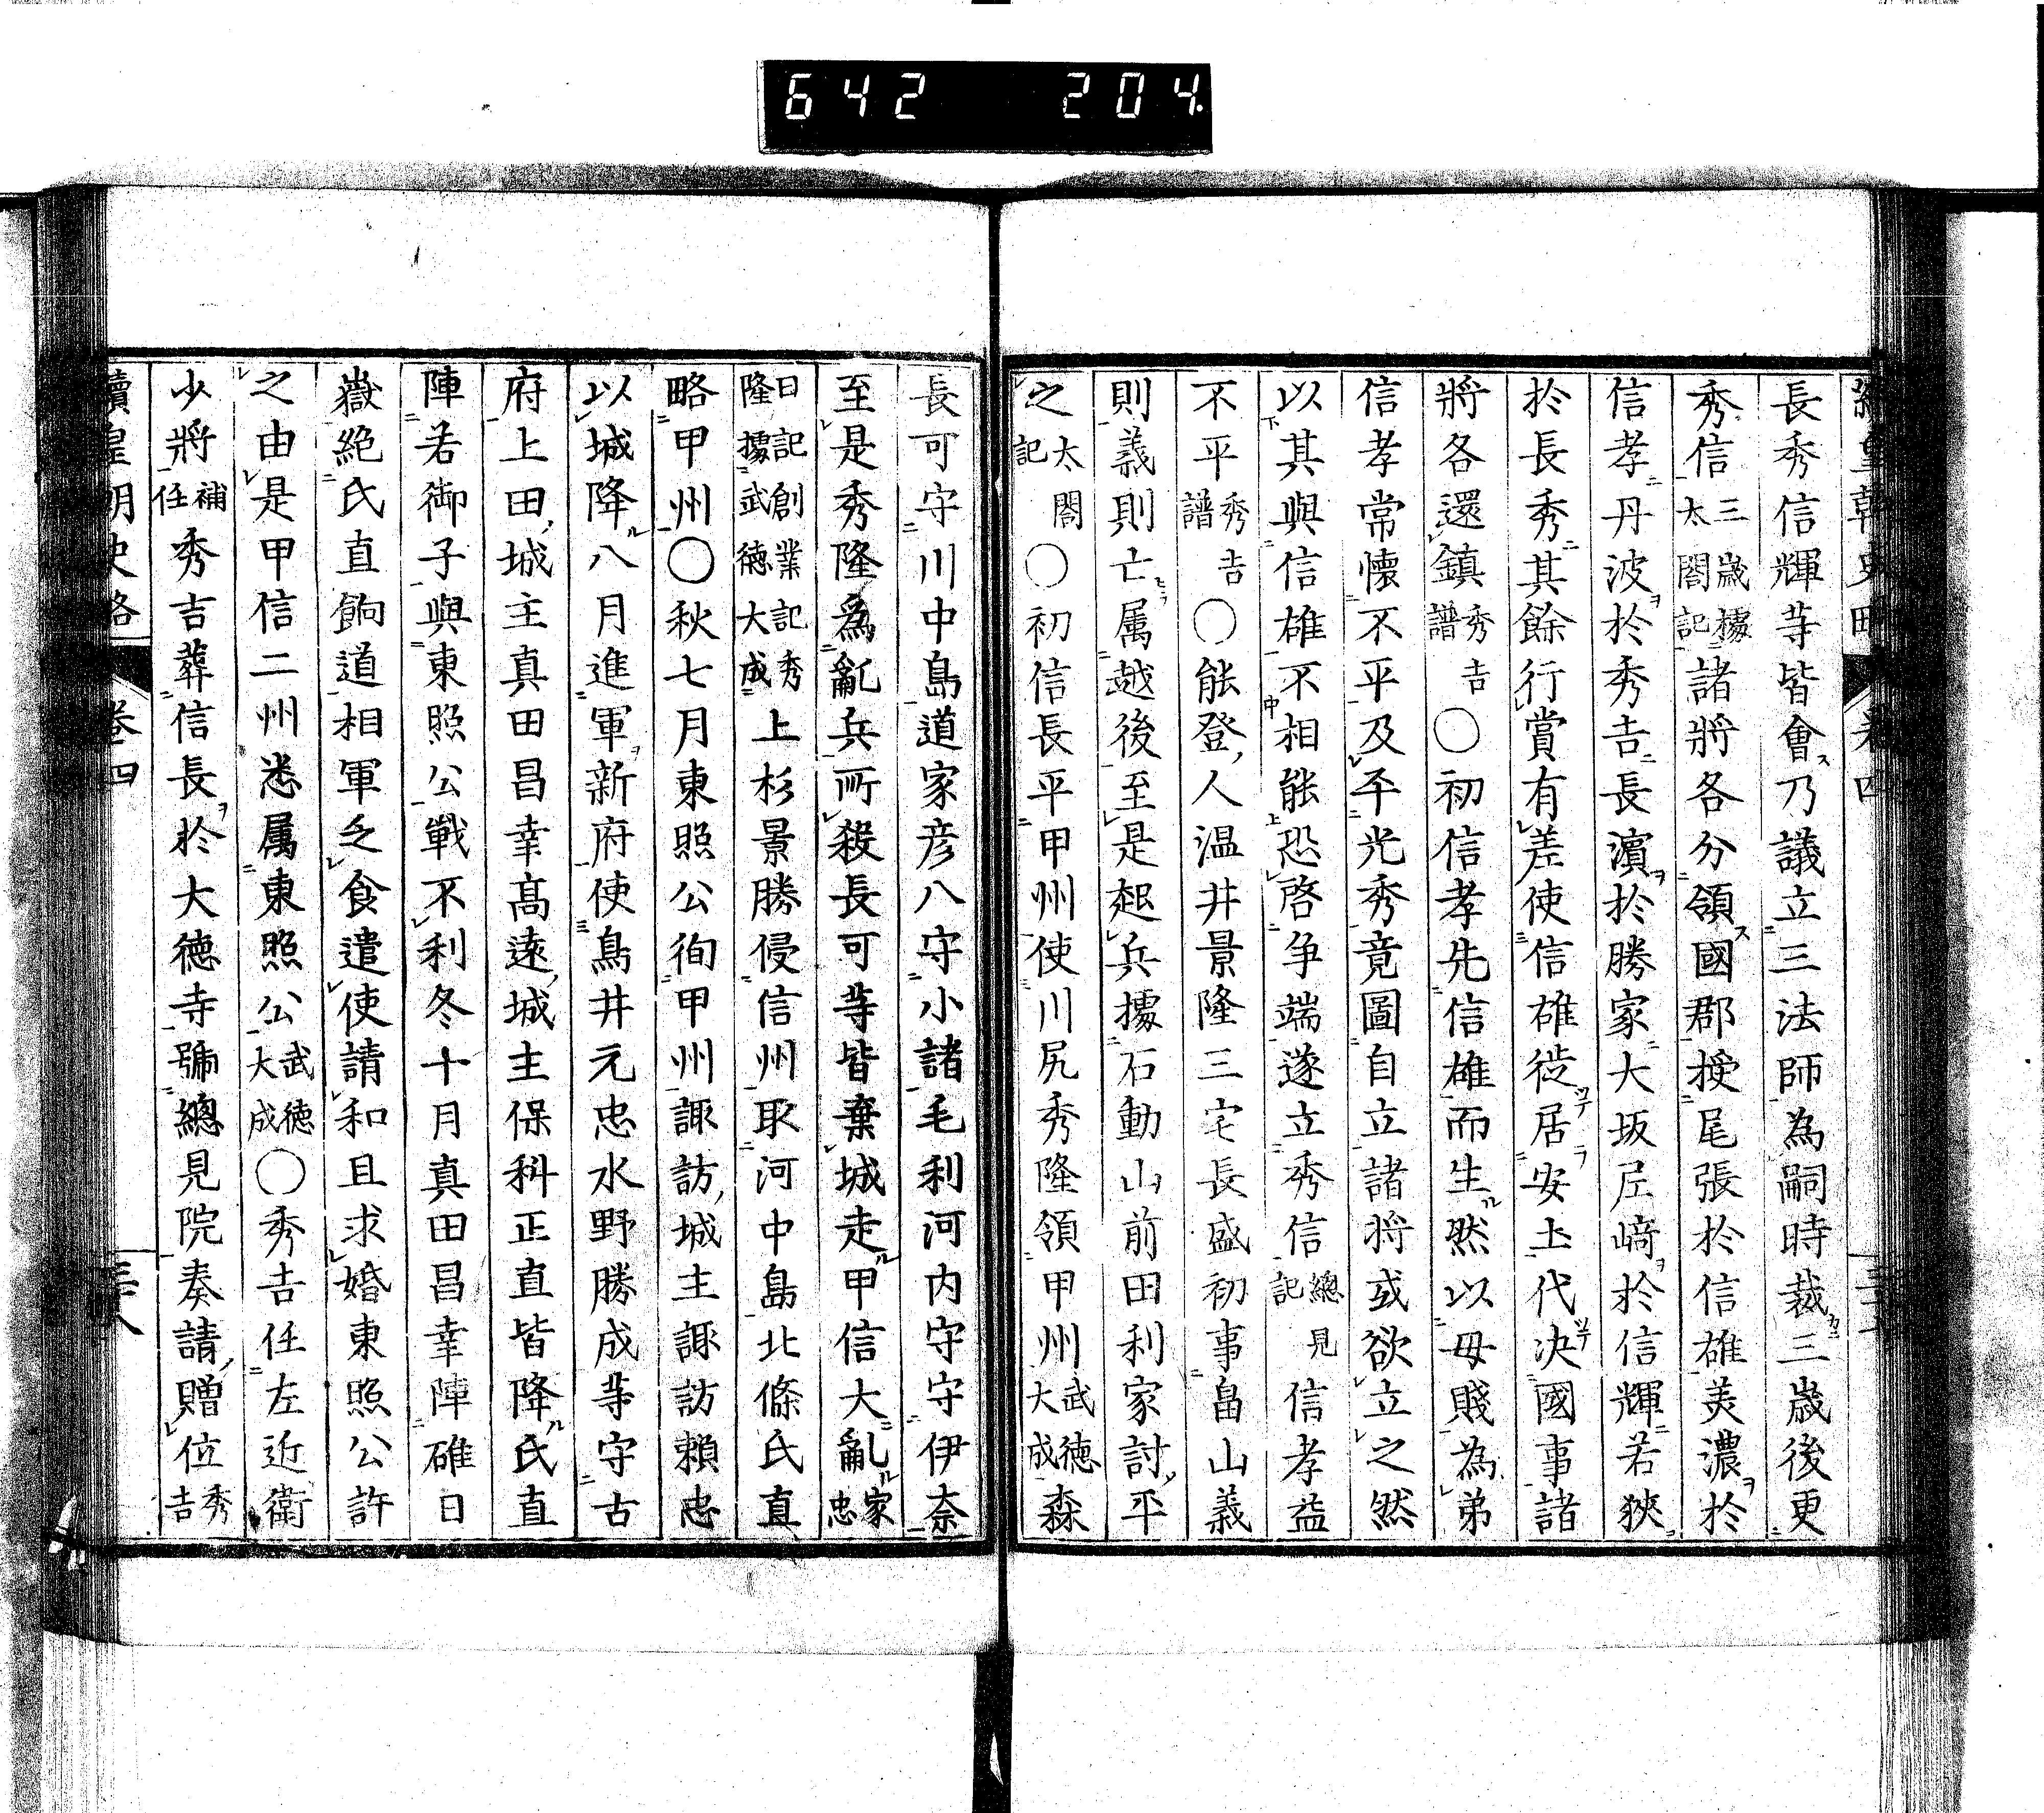 642 204
長秀信輝等皆會乃議立三法師為嗣時裁三歳後更
秀信三歳據太閤記諸將各分領國郡授尾張於信雄美濃於
信孝丹波於秀吉長濵於勝家大坂尼﨑於信輝若狹
於長秀其餘行賞有差使信雄徙居安土代决國事諸
將各還鎮秀吉譜〇初信孝先信雄而生然以母賤為弟
信孝常懷不平及平光秀竟圖自立諸将或欲立之然
以其與信雄不相能恐啓争端遂立秀信總見記信孝益
不平秀吉譜〇能登人温井景隆三宅長盛初事畠山義
則義則亡属越後至是起兵據石動山前田利家討平
之太閤記〇初信長平甲州使川尻秀隆領甲州武徳大成森
長可守川中島道家彦八守小諸毛利河内守守伊奈
至是秀隆爲亂兵所殺長可等皆棄城走甲信大亂家忠
日記創業記秀隆據武徳大成上杉景勝侵信州取河中島北條氏直
略甲州〇秋七月東照公徇甲州諏訪城主諏訪頼忠
以城降八月進軍新府使鳥井元忠水野勝成等守古
府上田城主真田昌幸髙遠城主保科正直皆降氏直
陣若御子與東照公戰不利冬十月真田昌幸陣碓日
嶽絶氏直餉道相軍乏食遣使請和且求婚東照公許
之由是甲信二州悉属東照公武徳大成〇秀吉任左近衛
少將補任秀吉葬信長於大德寺號總見院奏請贈位秀吉
續皇朝史略 卷四